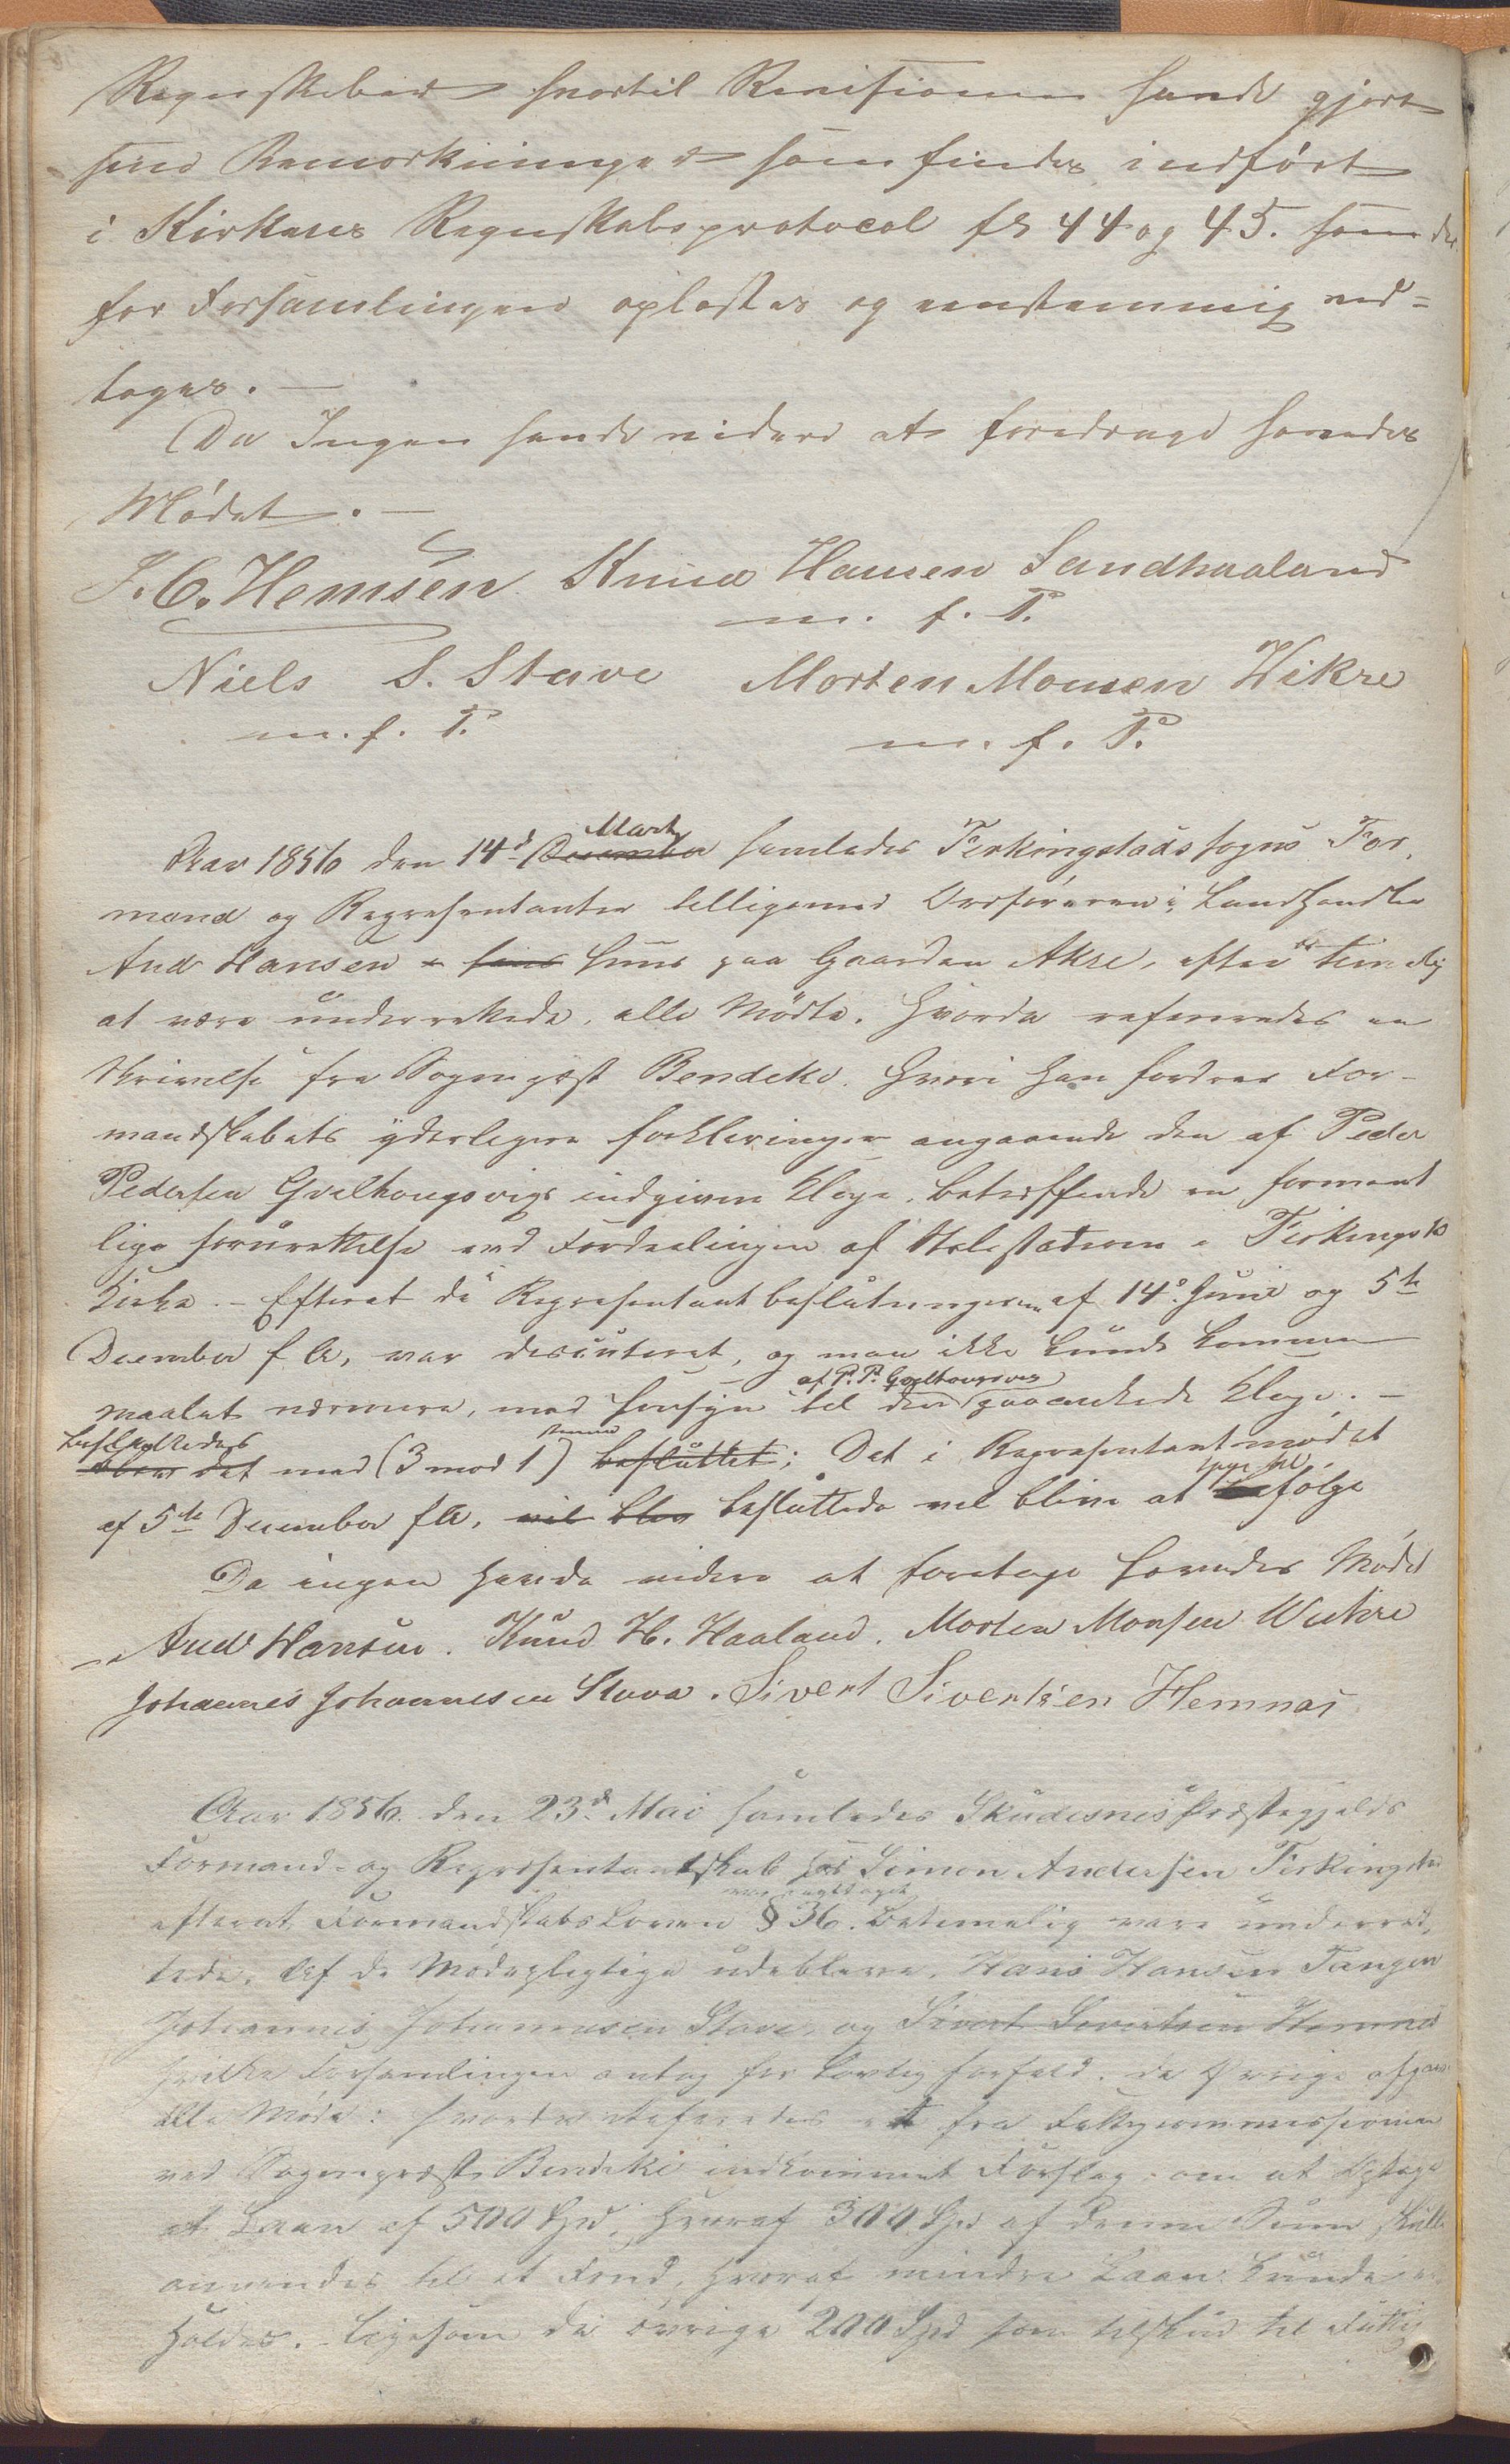 Regnskabet hvortil Revisionen havde gjort
sine Bemærkninger som findes indført
i Kirkens Regnskabsprotocol fol 44 og 45. som der
for Forsamlingen oplæstes og eenstemmig ved=
toges. —
Da Ingen havde videre at foredrage hævedes
Mødet. —
J. C. Hemsen Knud Hansen Sandhaaland
m. f. P.
Niels S. Stave Morten Monsen Wikre
m. f. P. m. f. P.
Aar 1856 den 14d December Marts samledes Ferkingstads Sogns For,
mænd og Repræsentanter tilligemed Ordføreren i Landhandler
And Hansen sine Huus paa Gaarden Akre, efter timelig
at være underrettede, alle Mødte. Hvorda refereredes en
Skrivelse fra Sogneprest Bendeke. Hvori han fordrer For-
mandskabets yderligere forklaringer angaaende den af Peder
Pedersen Qvalhougsvigs indgivne Klage, betreffende en forment
lige forurettelse ved Fordeelingen af Stolestaderne i Ferkingst
Kirke. – Efterat de Representantbeslutningerne af 14de Juni og 5te
December f. A. var discuteret, og man ikke kunde komme
af P. P. Qvalhougsvig
maalet nærmere, med hensyn til den paaankede Klage. —
besluttedes stemme
blev det med (3 mod 1) besluttet; Det i Representantmødet
af 5te December f A. vil blev besluttede vel blive at følge
Da ingen havde videre at foretage hævedes Mødet
And Hansen. Knud H. Haaland. Morten Monsen Wickre
Johannes Johannesen Stava. Sivert Sivertsen Hemnas
Aar 1856 den 23d Mai samledes Skudesnes Præstegjelds
Formand- og Repræsentantskab hos Simon Andersen Ferkingstad
efterat Formandskabs Loven § 36. betimelig vare underret,
tede. Af de Mødepligtige udebleve. Hans Hansen Tangen
Johannes Johannesen Stave, og Sivert Sivertsen Hemnes
hvilke Forsamlingen antog for Lovlig forfald. de Øvrige
alle Møde: hvorda refereredes et fra Fattigcommissionen
ved Sogneprest Bendeke indkommet Forslag. om at Optage
et Laan af 500 Spd, hvoraf 300 Spd af denne Sum skulle
anvendes til et Fond, hvoraf mindre Laan kunde er
holdes. – ligesom de øvrige 200 Spd som tilskud til Fattig